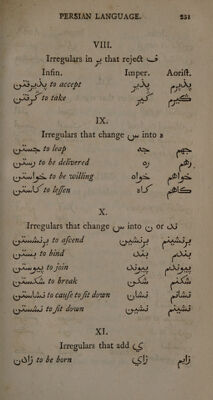 PERSIAN LANGUAGE. 251
VIII.
Irregulars in پر that reject ف
Infin. Imper. Aorist.
پذیرفتن to accept پذیر پذیرم
گرفتن to take گیر گیرم
IX.
Irregulars that change س into ه
جستن to leap جه جهم
رستن to be delivered ره رهم
خواستن to be willing خواه خواهم
کاستن to lessen کاه کاهم
X.
Irregulars that change س into ن or ند
برنشستن to ascend برنشین برنشینم
بستن to bind بند بندم
پیوستن to join پیوند پیوندم
شکستن to break شکن شکنم
نشاستن to cause to sit down نشان نشانم
نشستن to sit down نشین نشینم
XI.
Irregulars that add ي
زادن to be born زاي زایم